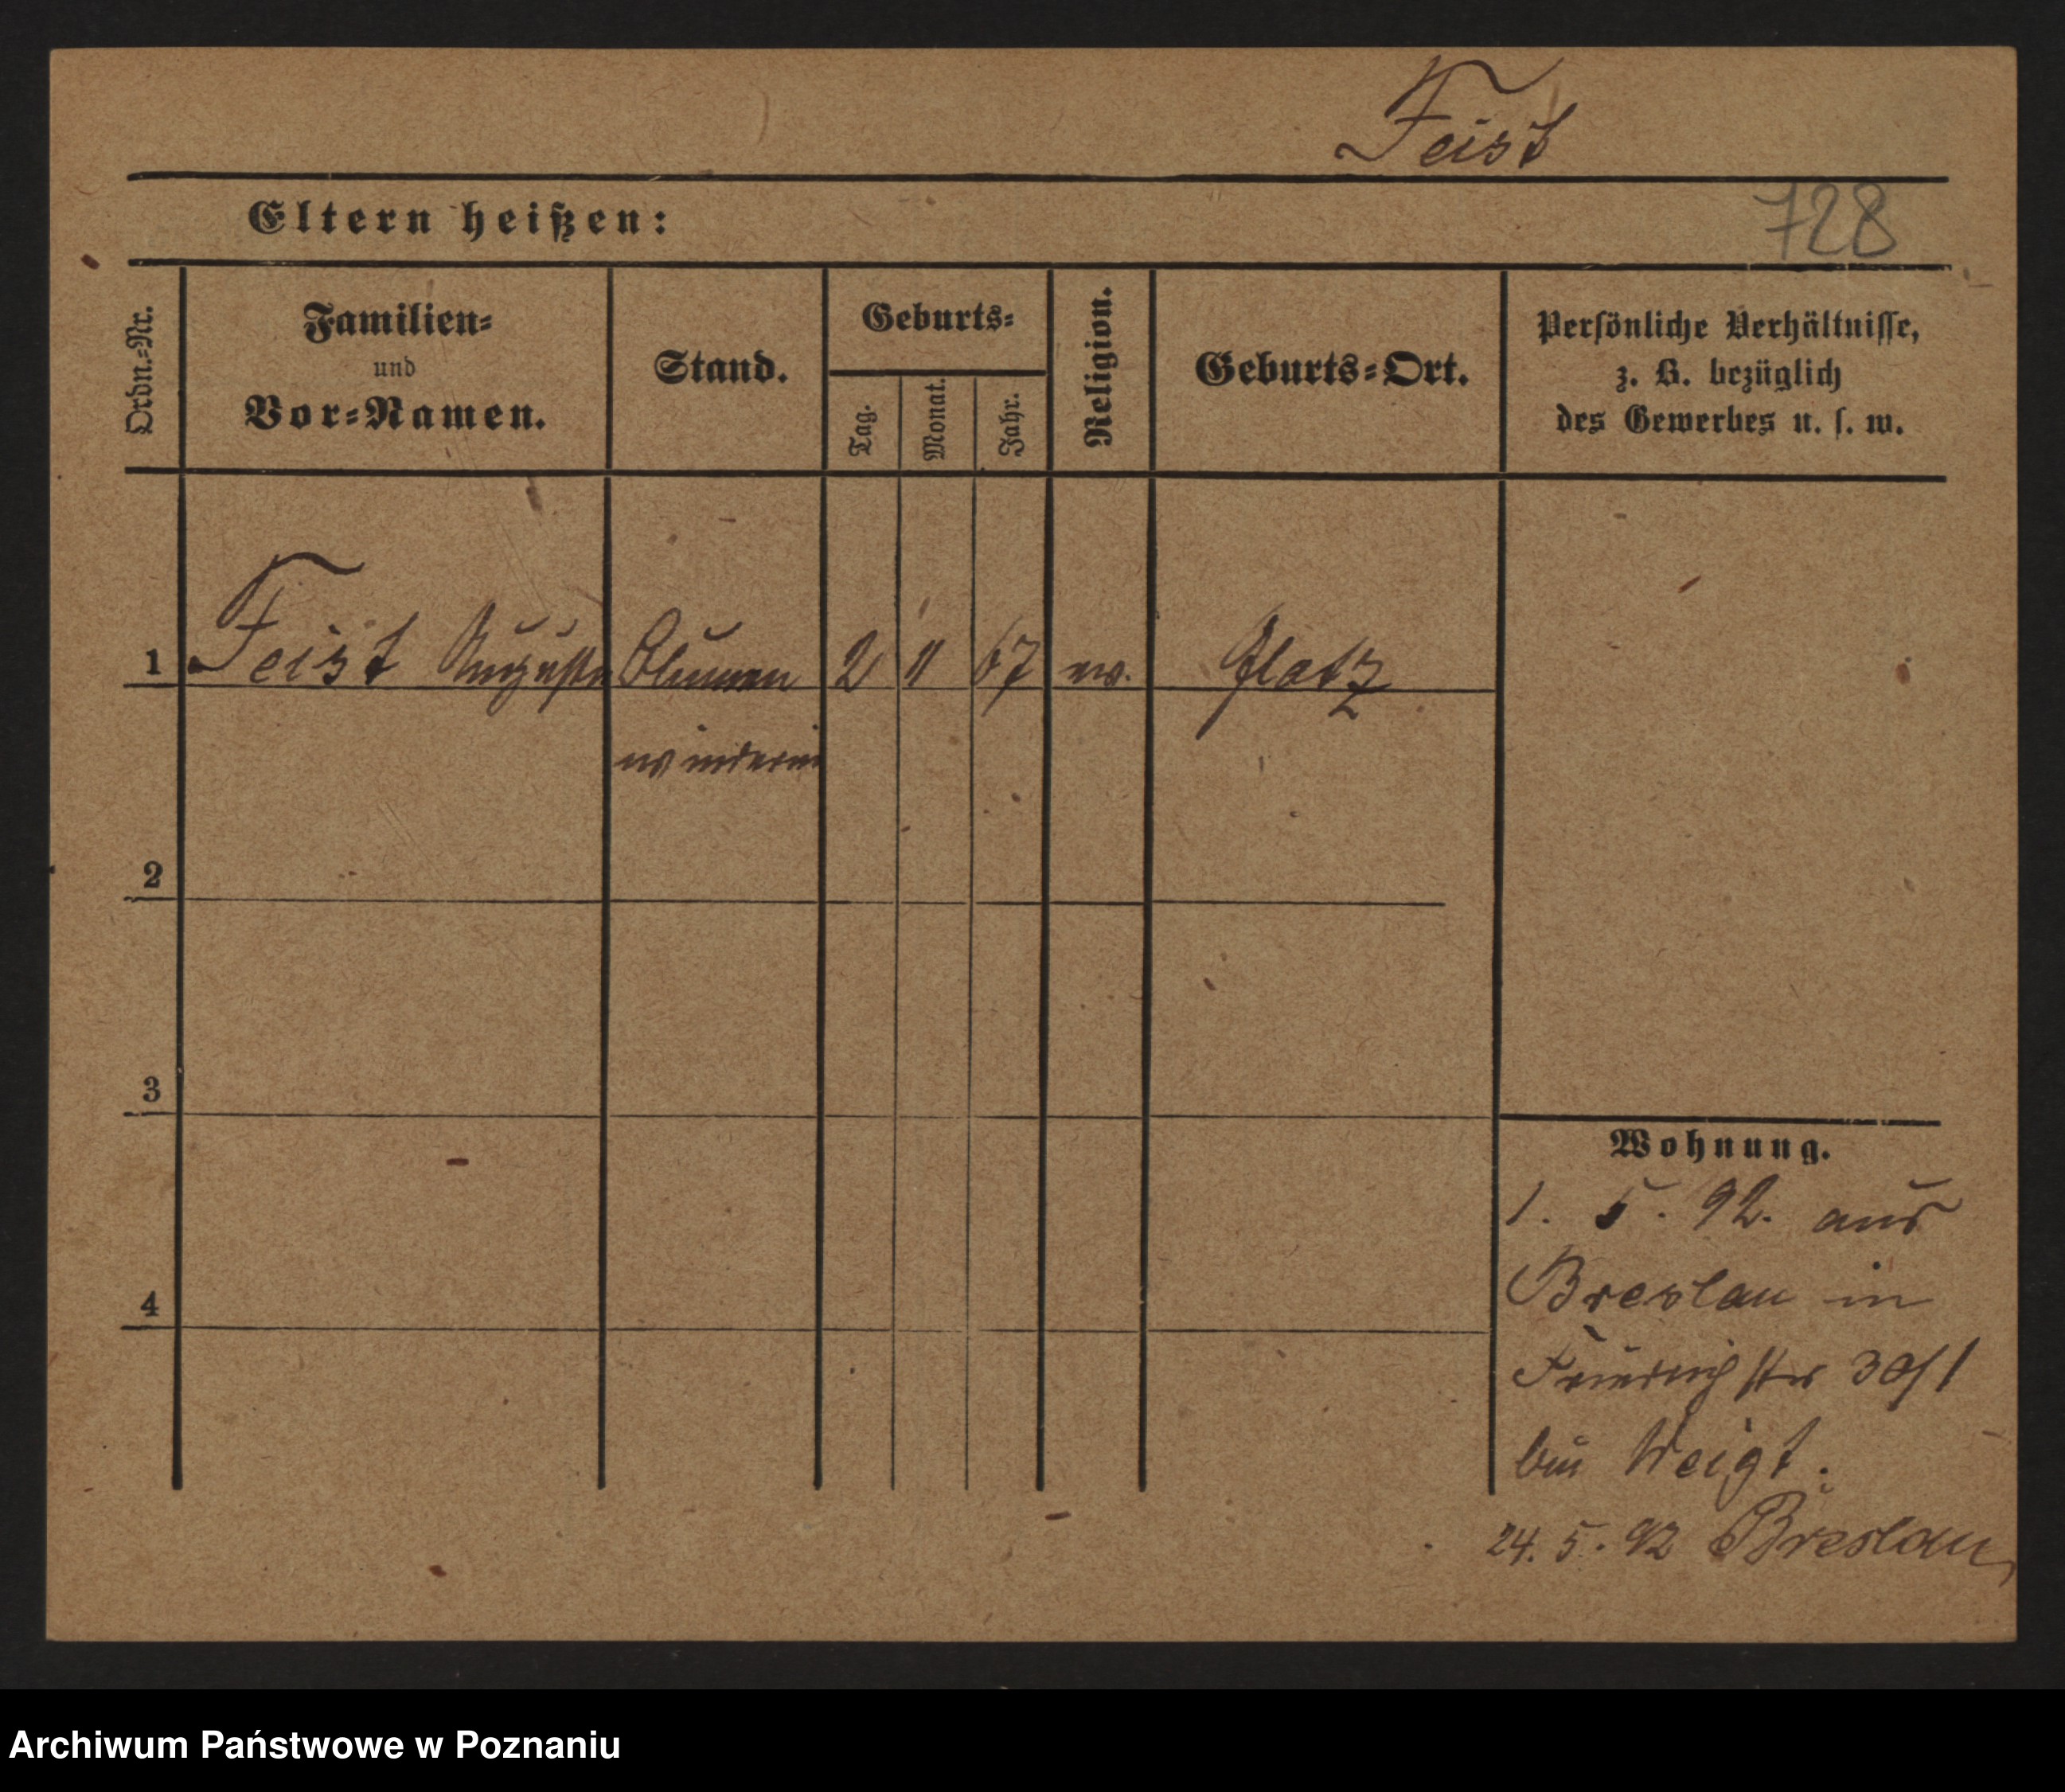 Feist
728
Eltern heißen:
Ordn.=Nr.
Familien=
und
Vor=Namen.
Stand.
Geburts=
Tag.
Monat.
Jahr.
Religion.
Geburts=Ort.
Persönliche Verhältnisse,
z. B. bezüglich
des Gewerbes u. s. w.
1 Feist Auguste Blumen 2 11 67 ev. Glatz
winderin
2
3
4
Wohnung.
1. 5. 92. aus
Breslau in
Friedrichstr 30/1
bei Weigt.
24. 5. 92 Breslau
Archiwum Państwowe w Poznaniu